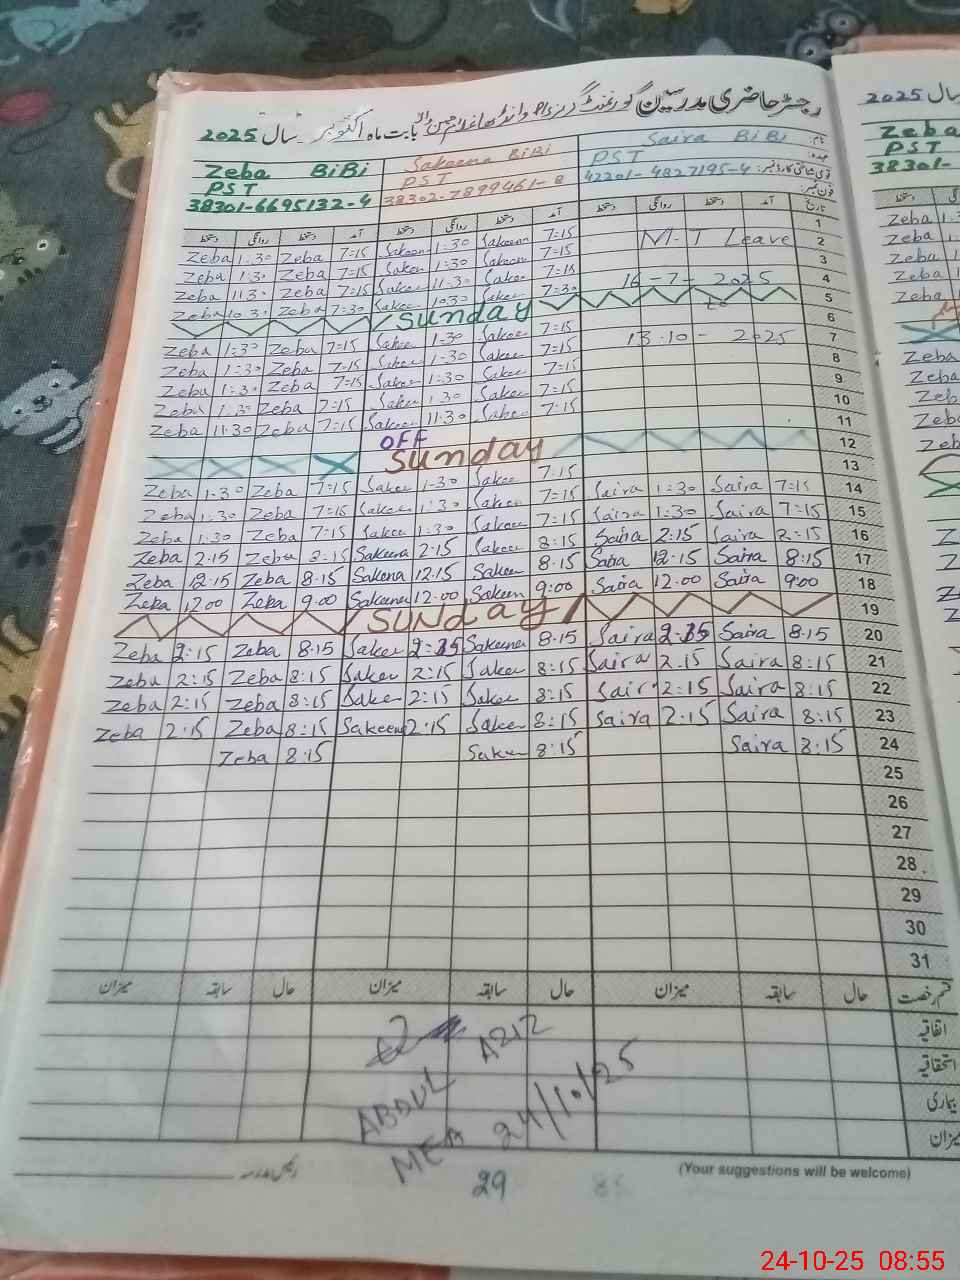 رجسٹر حاضری مدرسین گورنمنٹ گرلز بابت ماہ اکتوبر سال 2025
سال 2025
نام: Saira BiBi Sakeena BiBi Zeba BiBi
عہدہ: PST PST PST
قومی شناختی کارڈ نمبر: 42201-4827195-4 38302-7899461-8 38301-6695132-4
فون نمبر:
Zeba
PST
38301-
تاریخ آمد دستخط روانگی دستخط آمد دستخط روانگی دستخط آمد دستخط روانگی دستخط
1 Zeba 1:30 Zeba 7=15 Sakeen 1:30 Sakeen 7=15
2 Zeba 1:30 Zeba 7=15 Sakee 1:30 Sakeen 7=15 M.T Leave
3 Zeba 11.30 Zeba 7=15 Sakee 11.30 Sakee 7=15
4 Zeba 10.30 Zeba 7=30 Sakee 10.30 Sakee 7=30 16-7-2025
5 Sunday to
6 Zeba 1:30 Zeba 7=15 Sakee 1.30 Sakee 7=15
7 Zeba 1:30 Zeba 7=15 Sakee 1.30 Sakee 7=15 13-10-2025
8 Zeba 1:30 Zeba 7=15 Sakee 1:30 Sakee 7=15
9 Zeba 1:30 Zeba 7=15 Sakee 1.30 Sakee 7=15
10 Zeba 11:30 Zeba 7=15 Sakee 11:30 Sakee 7=15
11 OFF
12 Sunday
13 Zeba 1.30 Zeba 7=15 Sakee 1.30 Sakee 7.15
14 Zeba 1:30 Zeba 7=15 Sakee 1:30 Sakeen 7=15 Saira 1:30 Saira 7=15
15 Zeba 1.30 Zeba 7=15 Sakee 1:30 Sakee 7:15 Saira 1:30 Saira 7=15
16 Zeba 2.15 Zeba 8:15 Sakeena 2:15 Sakee 8:15 Saira 2:15 Saira 8:15
17 Zeba 12:15 Zeba 8.15 Sakena 12.15 Sakee 8.15 Saira 12.15 Saira 8:15
18 Zeba 12.00 Zeba 9.00 Sakeena 12.00 Sakeen 9:00 Saira 12.00 Saira 9:00
19 SUNday
20 Zeba 2:15 Zeba 8.15 Sakee 2:15 Sakeena 8.15 Saira 2:15 Saira 8.15
21 Zeba 2:15 Zeba 8:15 Sakee 2:15 Sakee 8:15 Saira 2.15 Saira 8:15
22 Zeba 2:15 Zeba 8:15 Sakee 2:15 Sakee 8:15 Sair 2:15 Saira 8:15
23 Zeba 2.15 Zeba 8:15 Sakeena 2:15 Sakee 8:15 Saira 2.15 Saira 8:15
24 Zeba 8:15 Sakee 8:15 Saira 8:15
25
26
27
28
29
30
31
قسم رخصت حال سابقہ میزان حال سابقہ میزان حال سابقہ میزان
اتفاقیہ
استحقاقیہ
بیماری
میزان
ABDUL AZIZ
MEA 24/10/25
رئیس مدرسہ
(Your suggestions will be welcome)
29
24-10-25 08:55